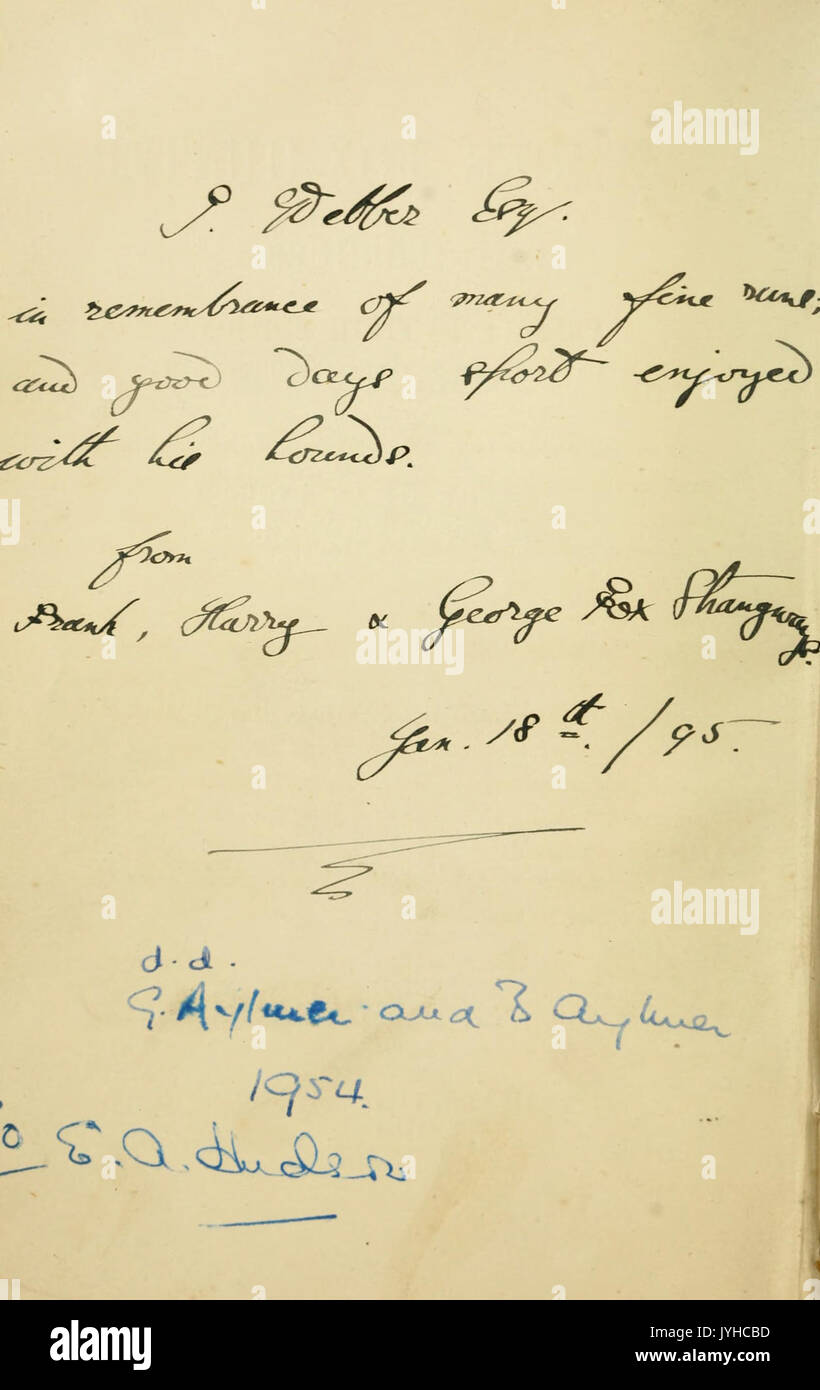 J. Webber Esq.
in remembrance of many fine runs;
and good days sport enjoyed
with his hounds.
from
Frank, Harry & George Fox Strangways.
Jan. 18th. /95.
d.d.
G. Aylmer and B Aylmer
1954.
to E. A. Hudson
alamy
alamy
alamy
Image ID: JYHCBD
www.alamy.com